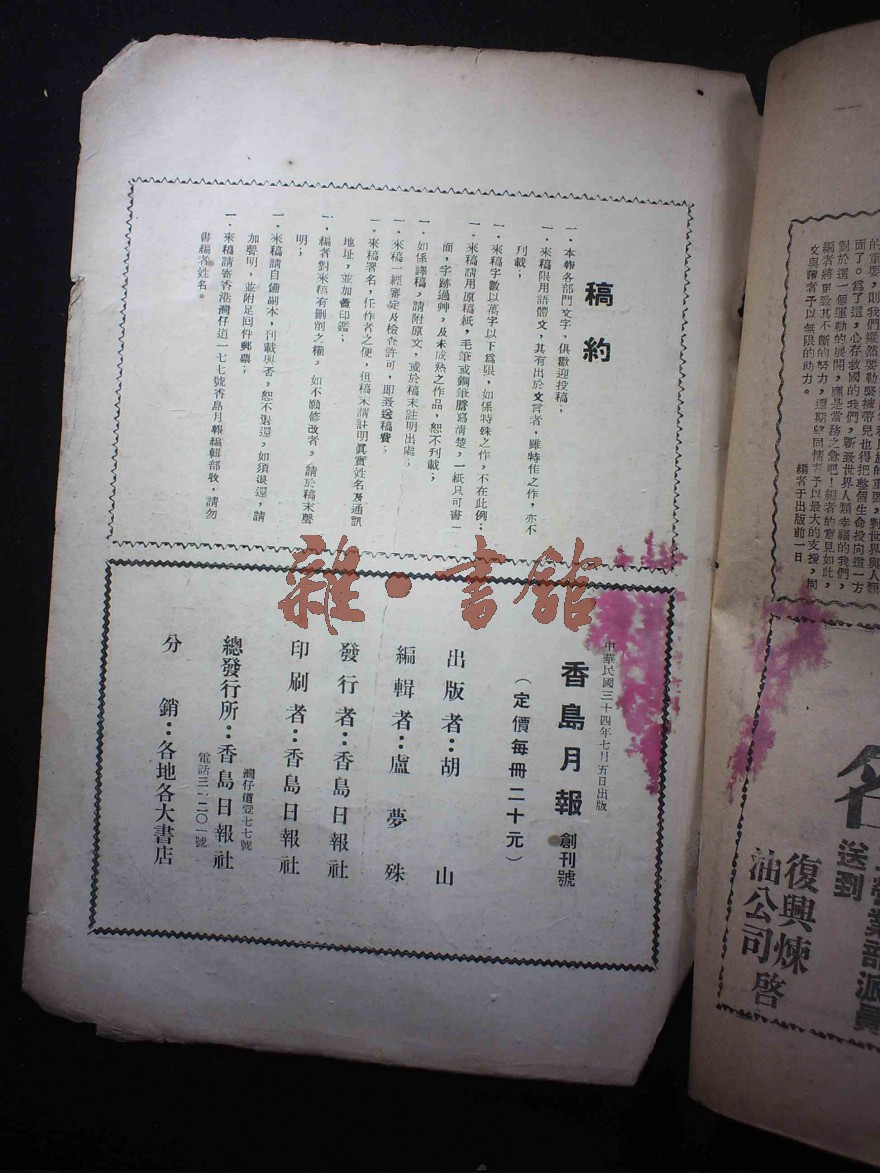 稿約
一．本報各部門文字，俱歡迎投稿；
一．來稿限用語體文，其有出於文言者，雖特佳之作，亦不
刊載；
一．來稿字數以萬字以下爲限，如係特殊之作，不在此例；
一．來稿請用原稿紙，毛筆或鋼筆謄寫清楚，一紙只可書一
面，字跡過艸，及未成熟之作品，恕不刊載；
一．如係譯稿，請附原文，或於稿末註明出處；
一．來稿一經審定及檢查許可，即致送稿費；
一．來稿署名，任作者之便，但稿末請註明眞實姓名及通訊
地址，並加蓋印鑑；
一．編者對來稿有刪削之權，如不願修改者，請於稿末聲
明；
一．來稿請自備副本，刊載與否，恕不退還，如須退還，請
加聲明，並附足回件郵票；
一．來稿請寄香港灣仔道一七七號香島月報編輯部收，請勿
書編者姓名。
中華民國三十四年七月五日出版
香島月報 創刊號
（定價每冊二十元）
出版者：胡山
編輯者：盧夢殊
發行者：香島日報社
印刷者：香島日報社
灣仔道壹七七號
總發行所：香島日報社
電話三一二〇一號
分銷：各地各大書店
雜·書館
的重要，則我們縱然要勒緊褲帶兒也得把整個生命投向這一方
面了。爲了這，心存救國的我們，
對於這一個運動的展開，應是當務之急吧！編者的意見如此，
編者將更致其不斷的努力，還期望同情者予以最大的支援，同
文與讀者予以無限的助力。
編者于出版前一日
送到
復興煉
油公司 啓